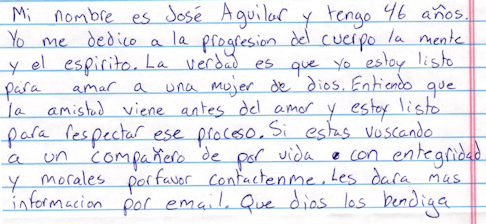 Mi nombre es José Aguilar y tengo 46 años.
Yo me dedico a la progresion del cuerpo la mente
y el espirito. La verdad es que yo estoy listo
para amar a una mujer de dios. Entiendo que
la amistad viene antes del amor y estoy listo
para respectar ese proceso. Si estas vuscando
a un compañero de por vida con entegridad
y morales porfavor contactenme. Les dara mas
informacion por email. Que dios los bendiga